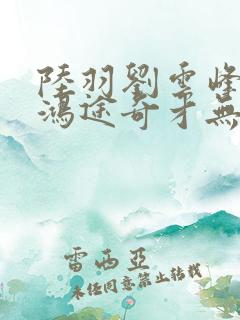 陸羽劉雲峰
鴻途奇才無
雷西亞
未經同意禁止轉載